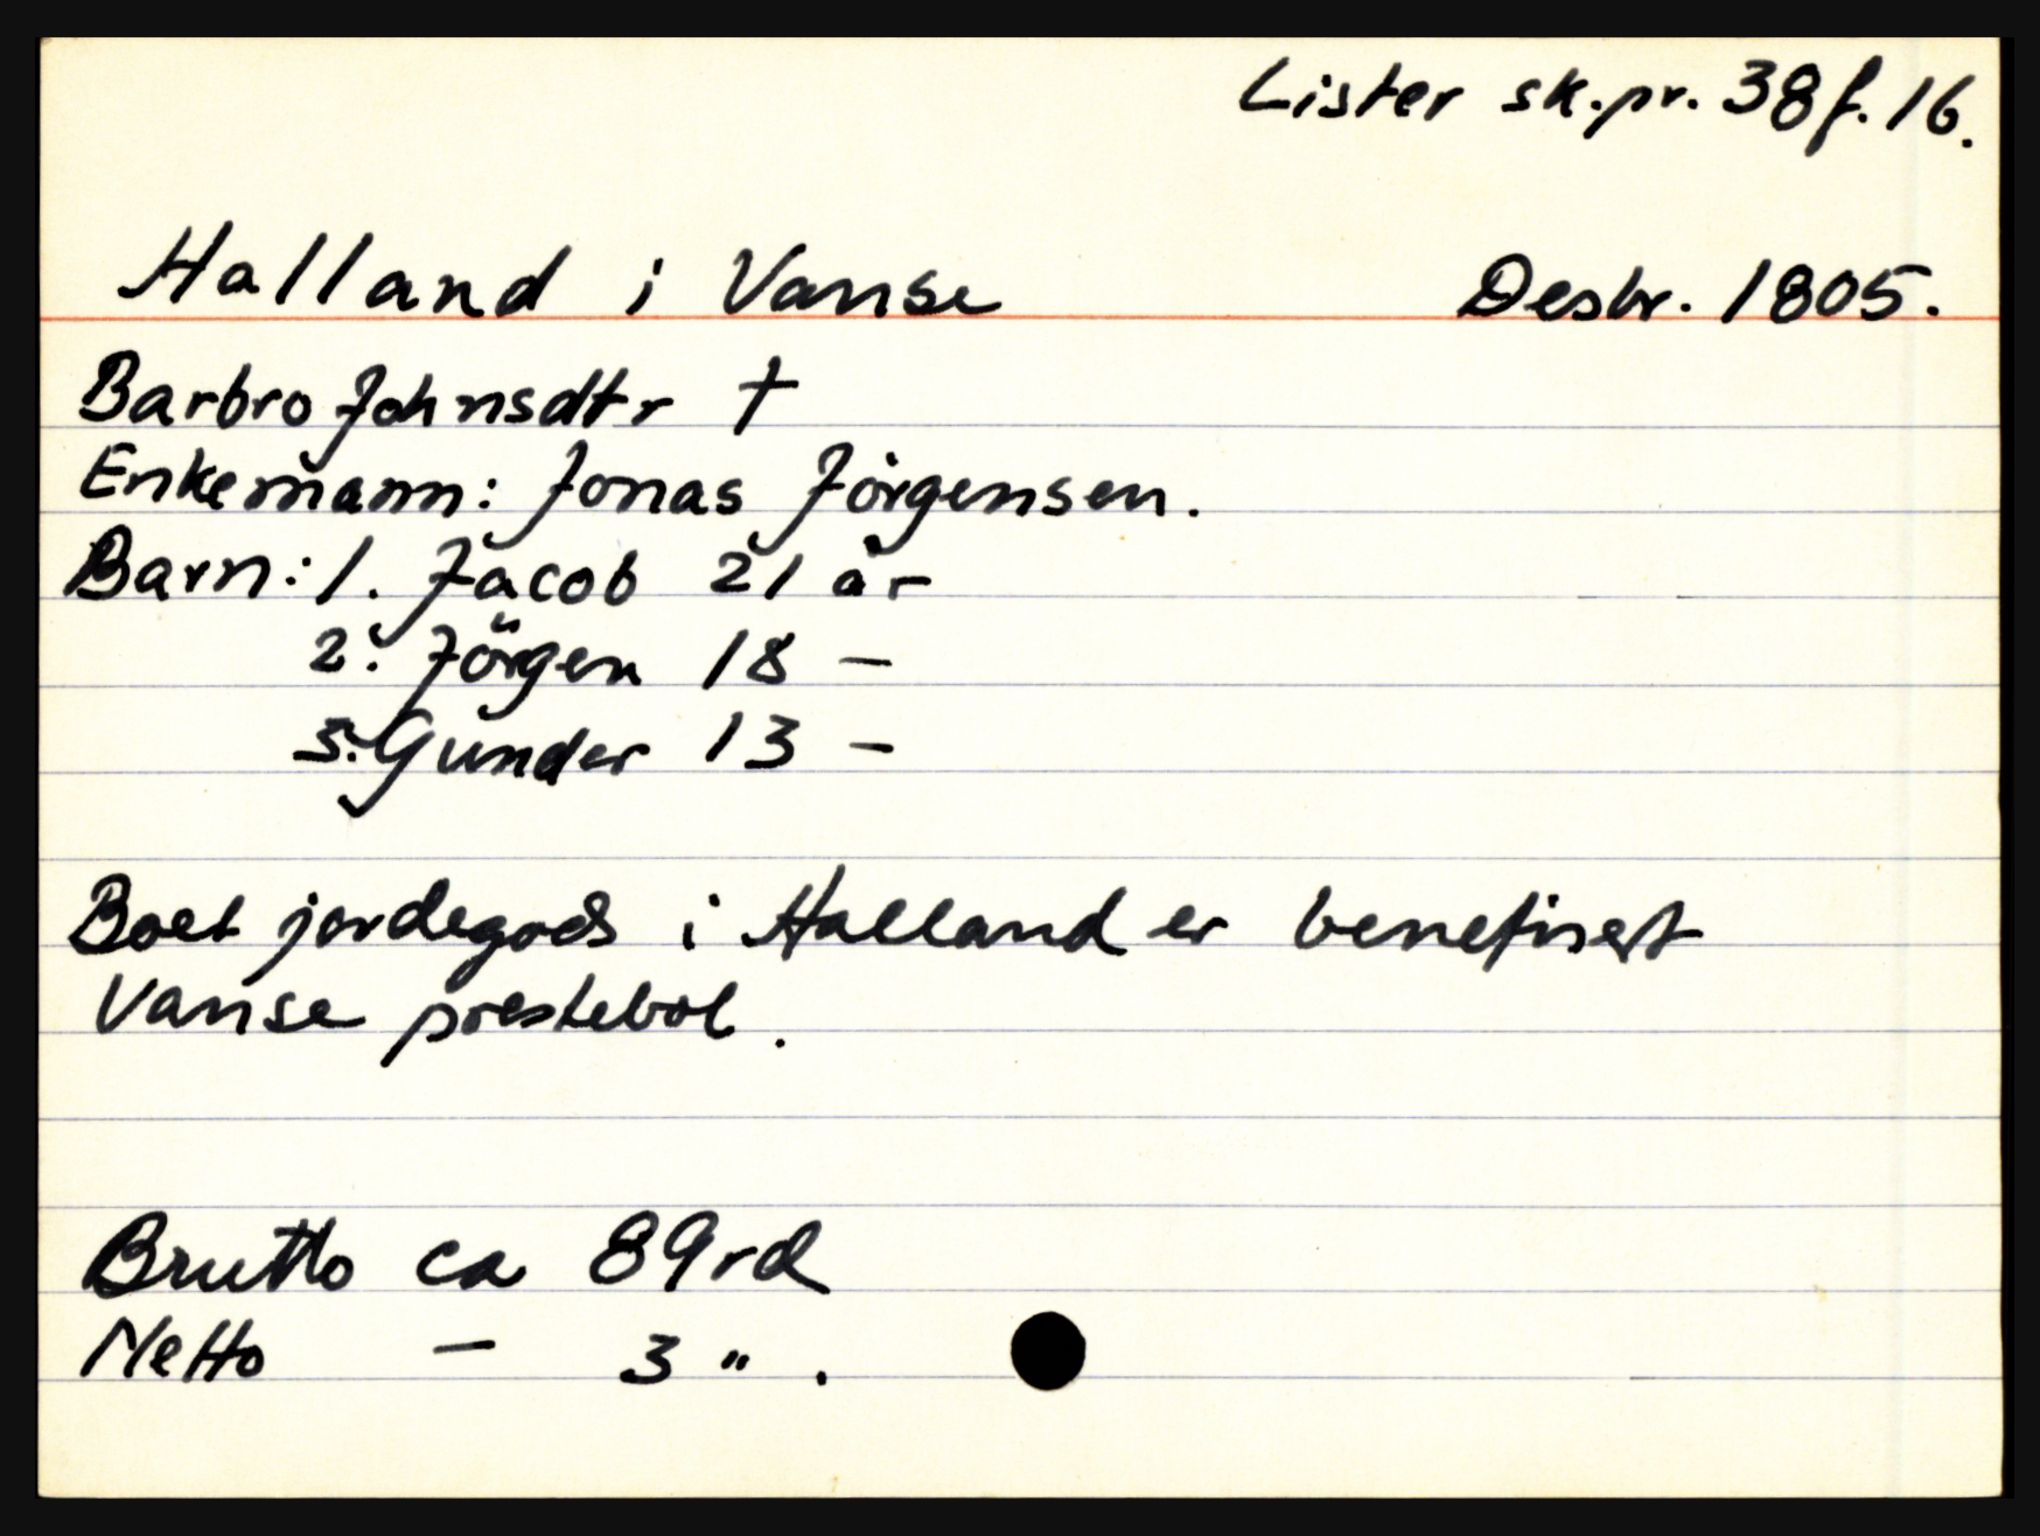 Lister sk.pr. 38 f. 16.
Halland i Vanse Desbr. 1805.
Barbro Johnsdtr †
Enkemann: Jonas Jörgensen.
Barn: 1. Jacob 21 år
2. Jörgen 18 —
3. Gunder 13 —
Boet jordegods i Halland er benefisert
Vanse prestebol.
Brutto ca 89 rd
Netto — 3 " .